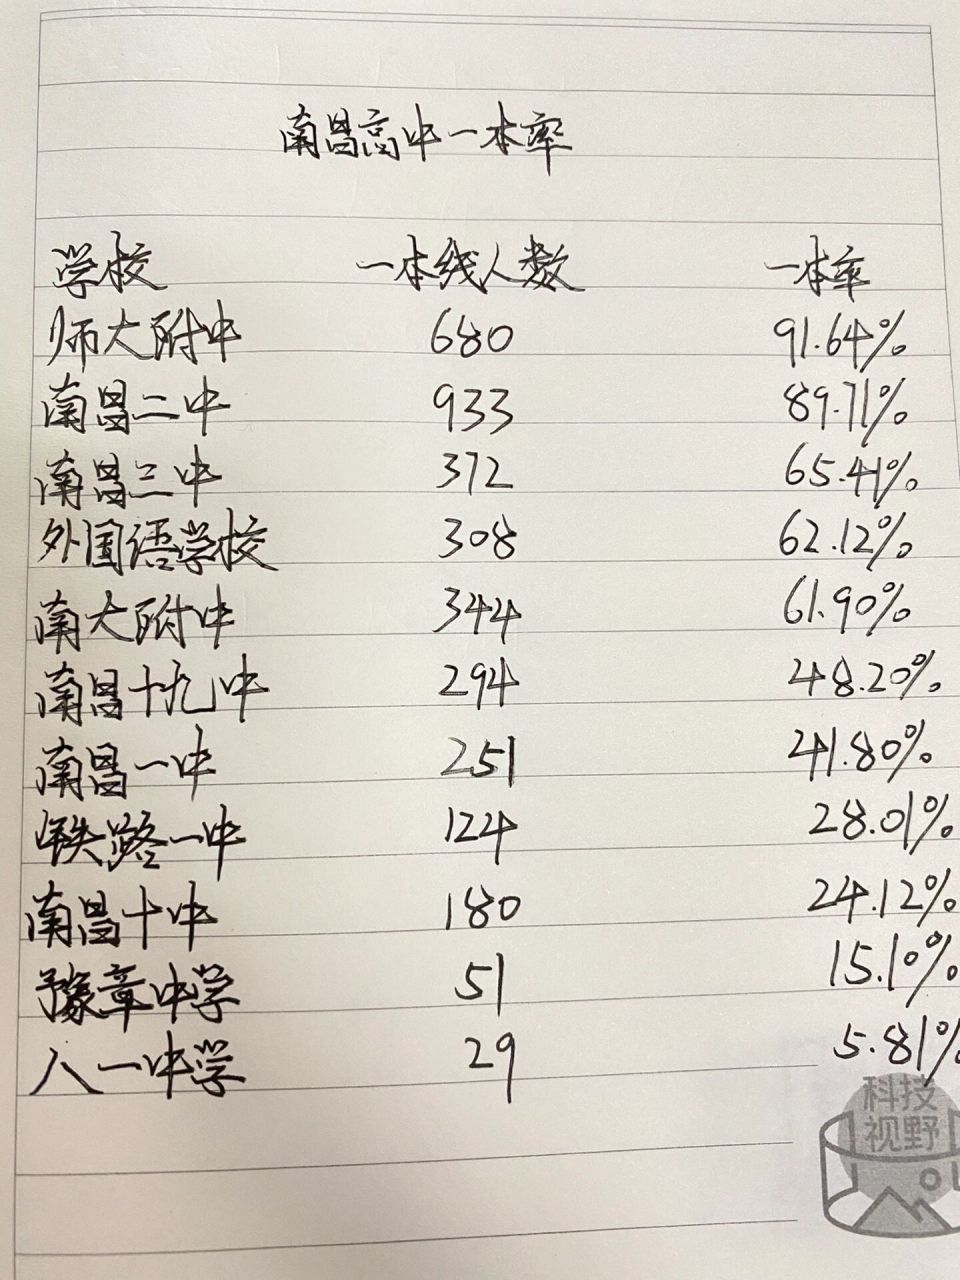 南昌高中一本率
学校 一本线人数 一本率
师大附中 680 91.64%
南昌二中 933 89.71%
南昌三中 372 65.41%
外国语学校 308 62.12%
南大附中 344 61.90%
南昌十九中 294 48.20%
南昌一中 251 41.80%
铁路一中 124 28.01%
南昌十中 180 24.12%
豫章中学 51 15.10%
八一中学 29 5.81%
科技
视野